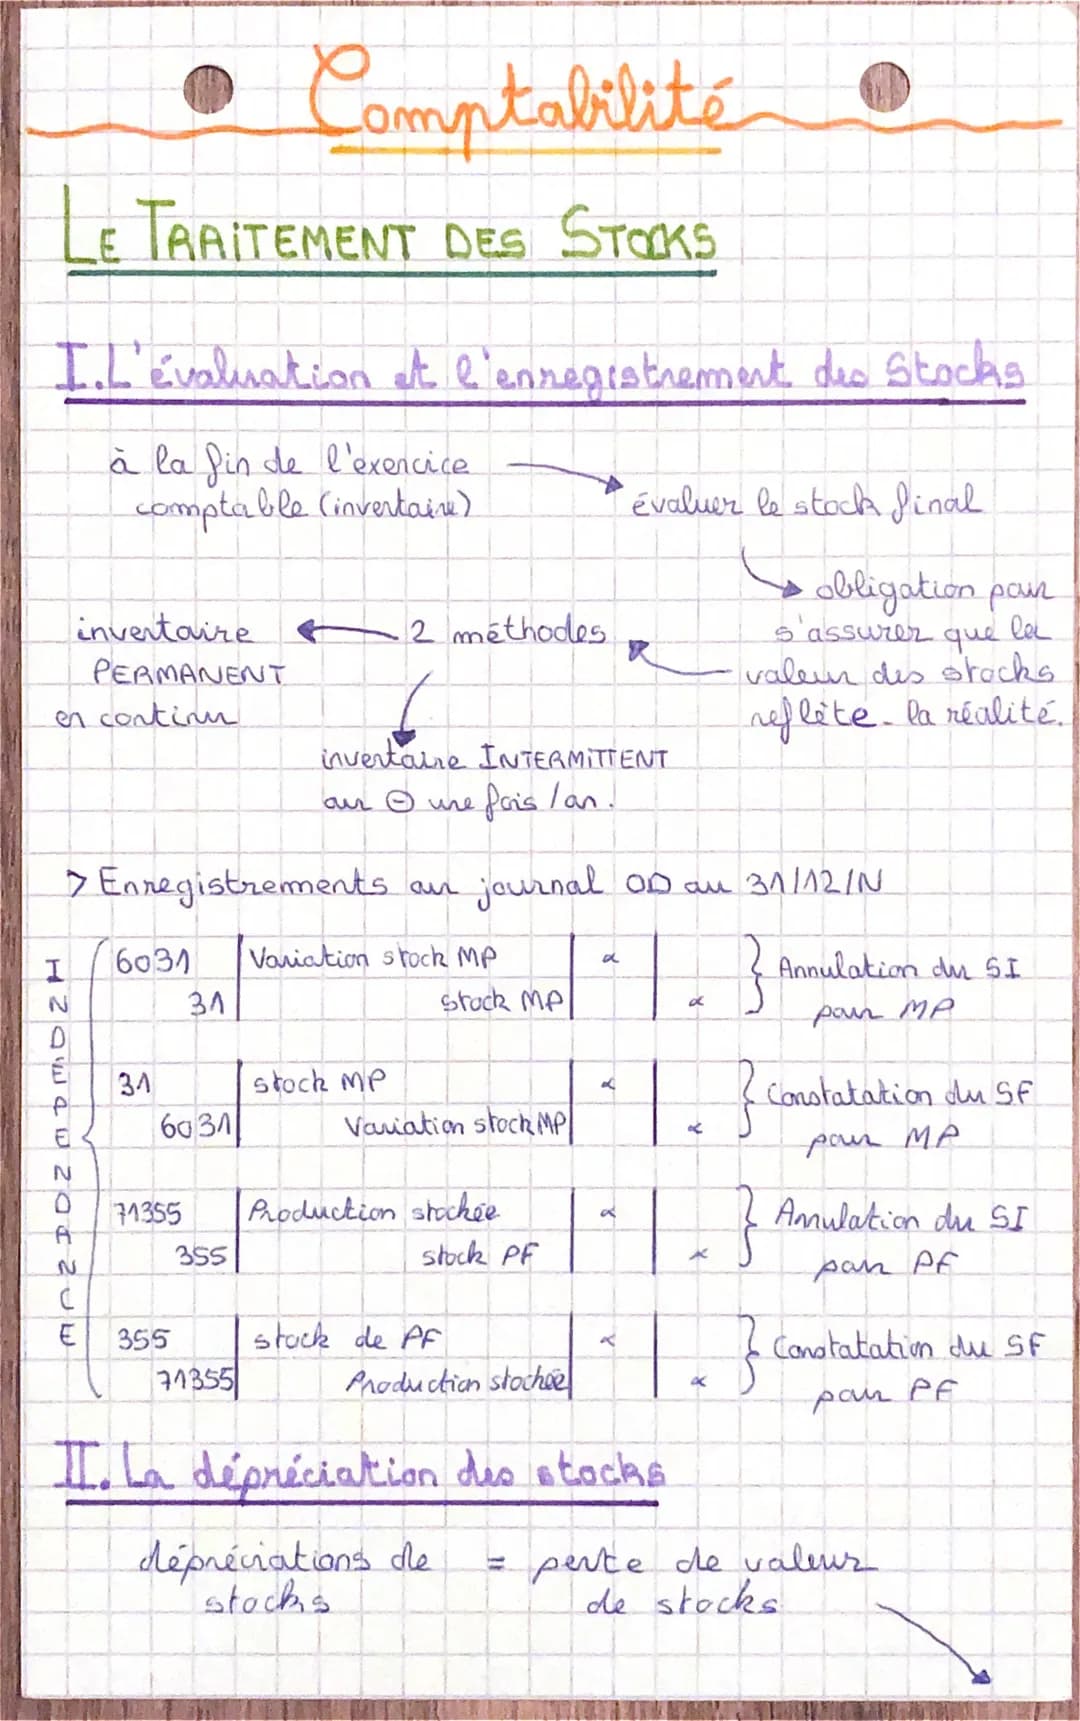 Comptabilité
LE TRAITEMENT DES STOCKS
I. L'évaluation et l'enregistrement des Stocks
à la fin de l'exercice
comptable (inventaire)
évaluer le stock final
obligation pour
s'assurer que la
valeur des stocks
reflète la réalité.
2 méthodes
inventaire
PERMANENT
en continu
inventaire INTERMITTENT
au ⊖ une fois /an.
> Enregistrements au journal OD au 31/12/N
INDÉPENDANCE
6031 Variation stock MP x
31 stock MP x
Annulation du SI
pour MP
31 stock MP x
6031 Variation stock MP x
Constatation du SF
pour MP
71355 Production stockée x
355 stock PF x
Annulation du SI
pour PF
355 stock de PF x
71355 Production stockée x
Constatation du SF
pour PF
II. La dépréciation des stocks
dépréciations de = perte de valeur
stocks de stocks